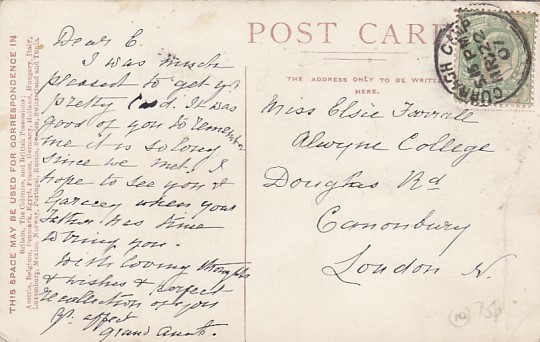 POST CARD
THE ADDRESS ONLY TO BE WRITTEN
HERE.
THIS SPACE MAY BE USED FOR CORRESPONDENCE IN
Britain, The Colonies, and British Possessions;
Austria, Belgium, Denmark, Egypt, France, Germany, Holland, Hungary, Italy,
Luxemburg, Mexico, Norway, Portugal, Russia, Sweden, Switzerland and Tunis.
Dear E.
I was much
pleased to get yr
pretty Card. It was
good of you to remember
me it is so long
since we met. I
hope to see you &
when your
Father has time
to bring you.
With loving thoughts
& wishes & perfect
recollection of you
Yr. affect
Grand Aunt.
Miss Elsie Farrall
Alwyne College
Douglas Rd
Canonbury
London N.
CURRAGH CAMP
MR 22
07
10 75p